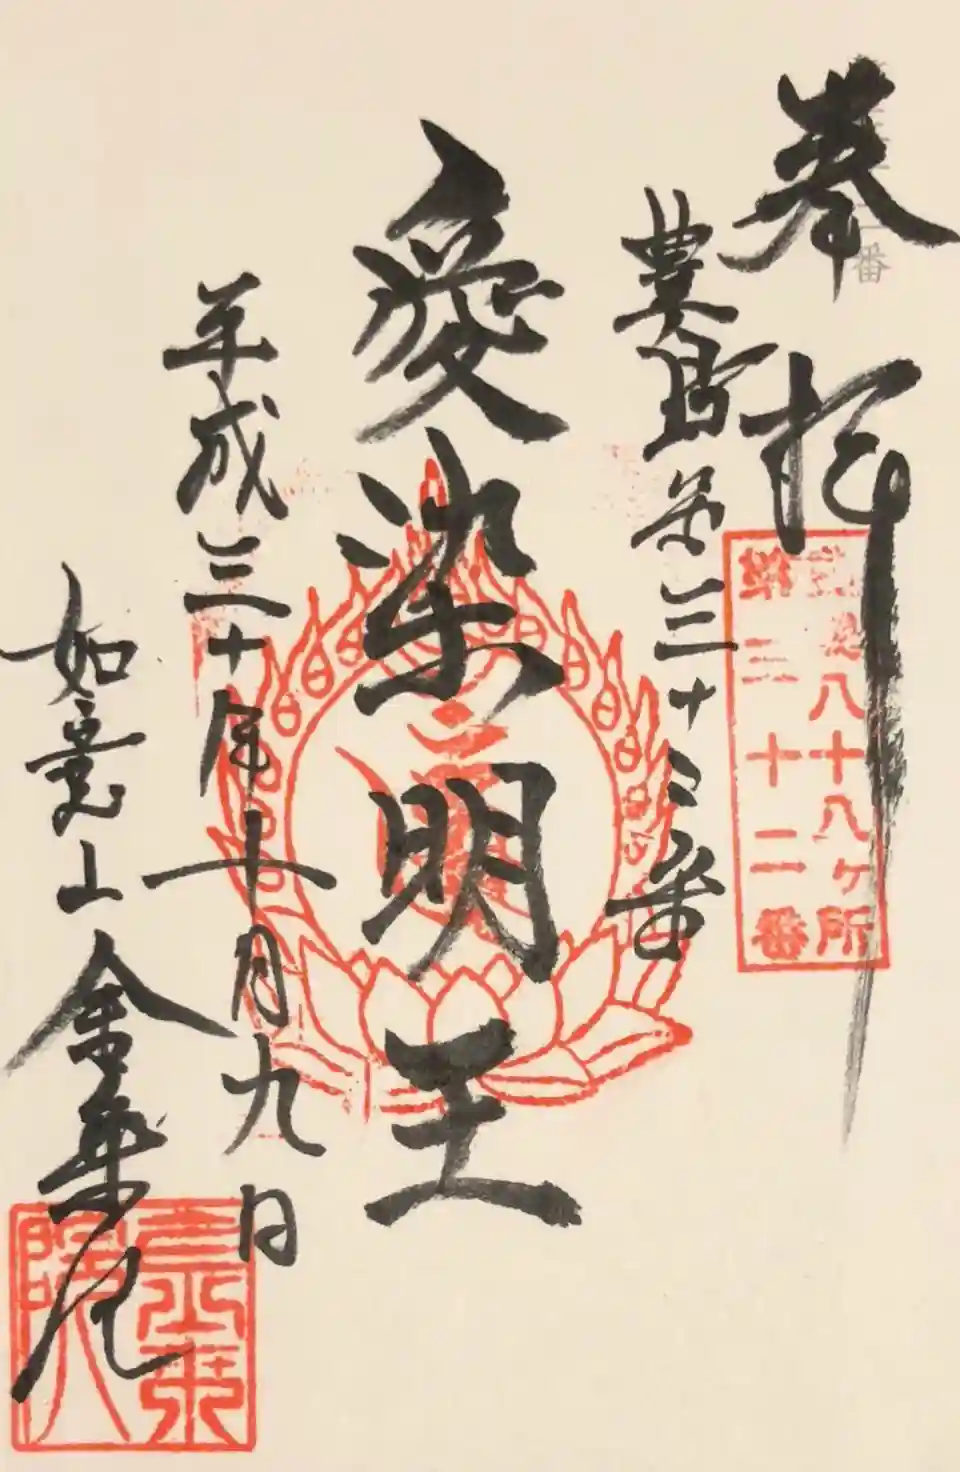 番
奉拝
豊島八十八ヶ所
第三十二番
豊島第三十二番
愛染明王
平成三十年十月九日
如意山金乗院